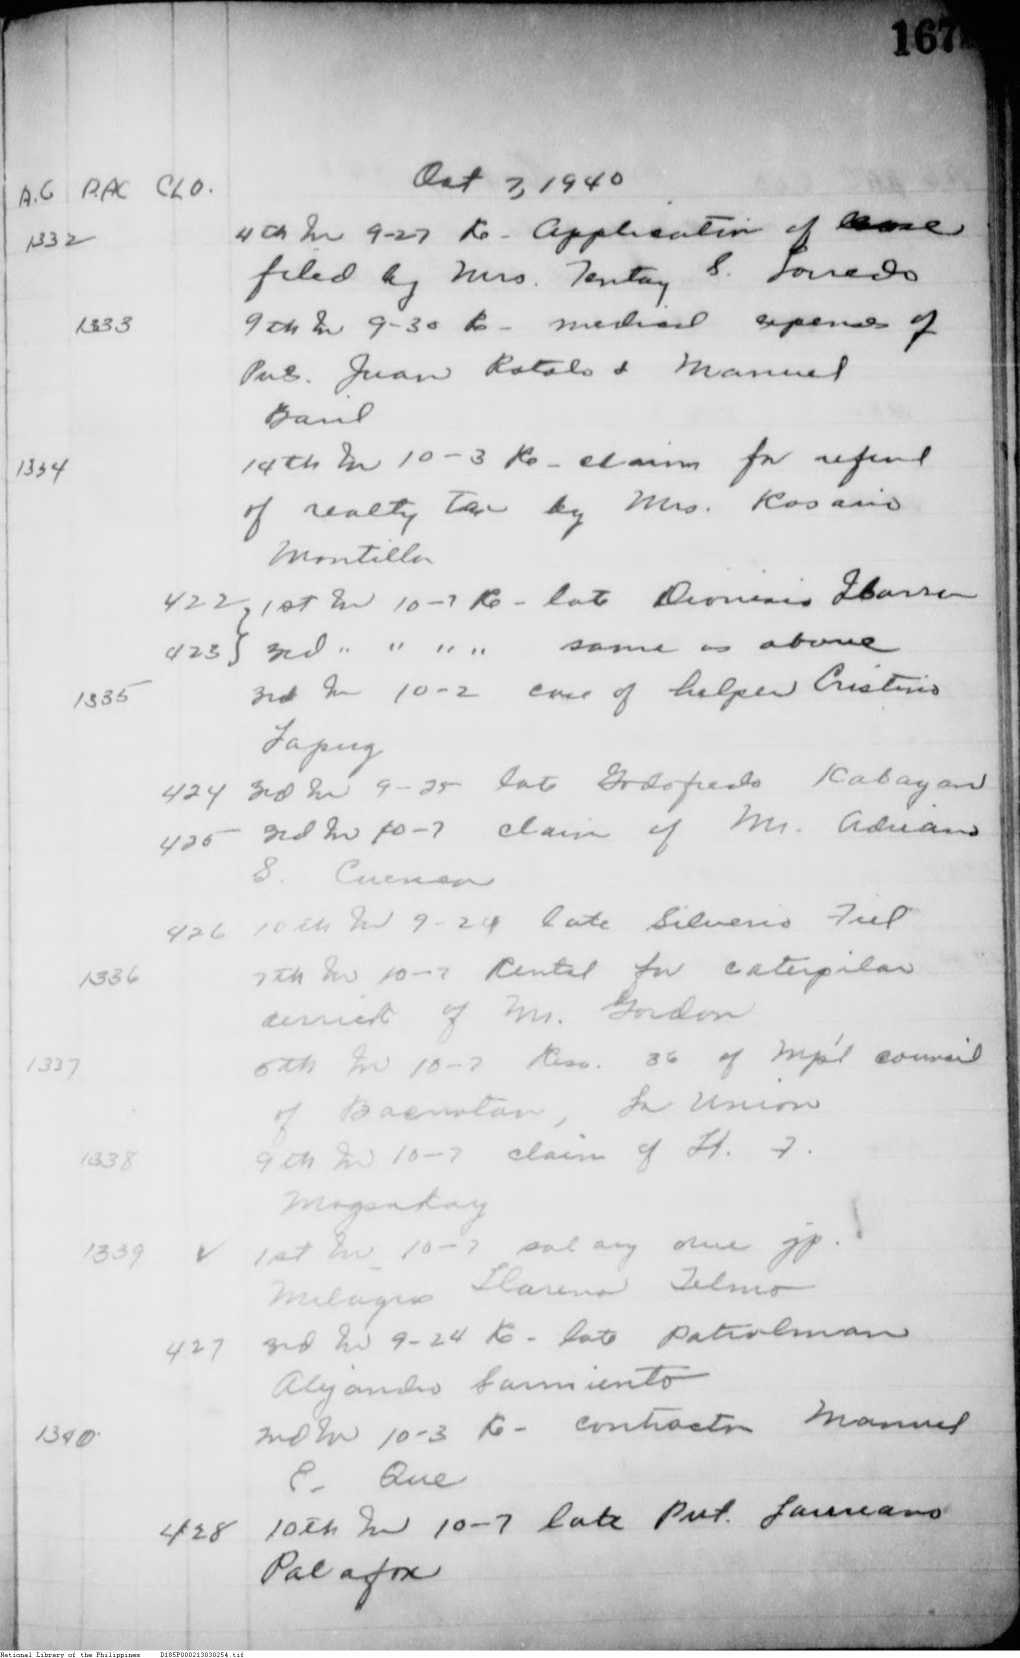 167
Oct 7, 1940
A.G P.AC CLO.
1332 4th In 9-27 Re - Application of lease
filed by Mrs. Tentay S. Loredo
1333 9th In 9-30 Re - medical expenses of
Pvts. Juan Rotolo & Manuel
Baril
1334 14th In 10-3 Re - claim for refund
of realty tax by Mrs. Rosario
Montilla
422 } 1st In 10-7 Re - late Dionisio Ibarra
423 } 3rd " " " " same as above
1335 3rd In 10-2 case of helper Cristino
Lapug
424 3rd In 9-25 late Godofredo Kabayan
425 3rd In 10-7 claim of Mr. Adriano
S. Cuenca
426 10th In 9-24 late Silverio Fiel
1336 7th In 10-7 Rental for caterpilar
derrick of Mr. Gordon
1337 5th In 10-7 Reso. 36 of Mp'l council
of Bacnotan, La Union
1338 9th In 10-7 claim of Lt. F.
Magsakay
1339 ✓ 1st In 10-7 salary due jp.
Milagros Llarena Telmo
427 3rd In 9-24 Re - late patrolman
Alejandro Sarmiento
1340 2nd In 10-3 Re - contractor Manuel
E. Que
428 10th In 10-7 late Pvt. Laureano
Palafox
National Library of the Philippines D185P000213030254.tif